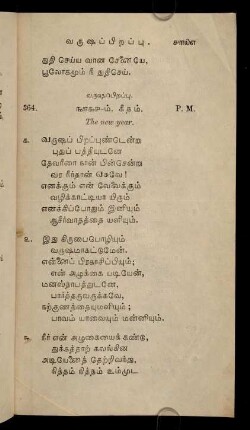 வருஷப்பிறப்பு.
துதி செய்ய வான சேனையே,
பூலோகமும் நீ துதிசெய்.
வருஷப்பிறப்பு.
564. கீதம். P. M.
The new year.
க. வருஷப் பிறப்புண்டென்று
புதுப் பத்தியுடனே
தேவரீரை நான் பின்சென்று
வர நீர்தான் யேசுவே!
எனக்கும் என் வேலைக்கும்
வழிக்காட்டியா யிரும்
எனக்கிப்போதும் இனியும்
ஆசீர்வாதத்தை யளியும்.
உ. இது கிருபைபொழியும்
வருஷமாகட்டுமேன்.
என்னைப் பிரகாசிப்பியும்;
என் அழுக்கை படியேன்,
மனஸ்தாபத்துடனே,
பார்த்தருவருக்கவே,
கற்குணத்தையுமளியும்;
பாவம் யாவையும் மன்னியும்.
நீர் என் அழுகையைக் கண்டு,
துக்கத்தாற் கலங்கின
அடியேனைத் தெற்றிவந்து,
நித்தம் நித்தம் உம்முட